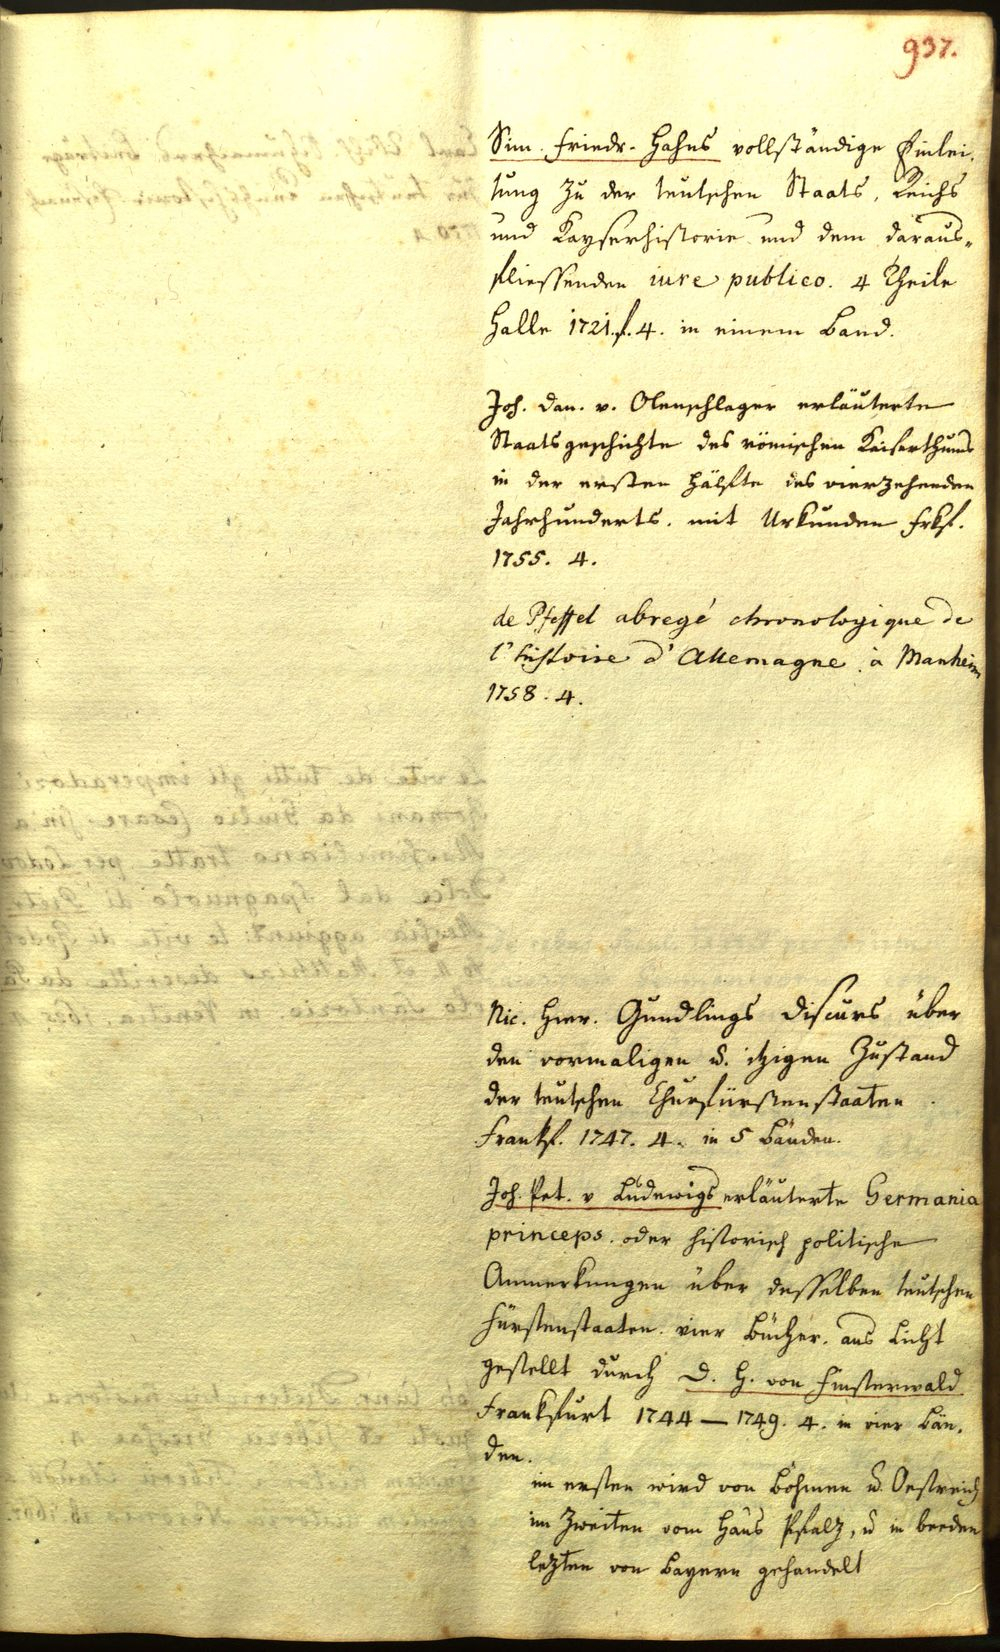 937.
Sim. Friedr. Hahns vollständige Einlei-
tung zu der teutschen Staats, Reichs
und Kayserhistorie und dem daraus-
fliessenden iure publico. 4 Theile
Halle 1721.f. 4. in einem Band.
Joh. Dan. v. Olenschlager erläuterte
Staatsgeschichte des römischen Kaiserthums
in der ersten Hälfte des vierzehenden
Jahrhunderts. mit Urkunden Frkf.
1755. 4.
de Pfeffel abregé chronologique de
l'histoire d'Allemagne à Manheim
1758. 4.
Nic. Hier. Gundlings Discurs über
den vormaligen u. itzigen Zustand
der teutschen Churfürstenstaaten
Frankf. 1747. 4. in 5 Bänden.
Joh. Pet. v Ludewigs erläuterte Germania
princeps. oder historisch politische
Anmerkungen über desselben teutschen
Fürstenstaaten. vier Bücher. ans Licht
gestellt durch D. H. von Finsterwald
Frankfurt 1744 — 1749. 4. in vier Bän-
den.
im ersten wird von Böhmen u. Oestreich
im zweiten vom Haus Pfalz, u in beeden
lezten von Bayern gehandelt